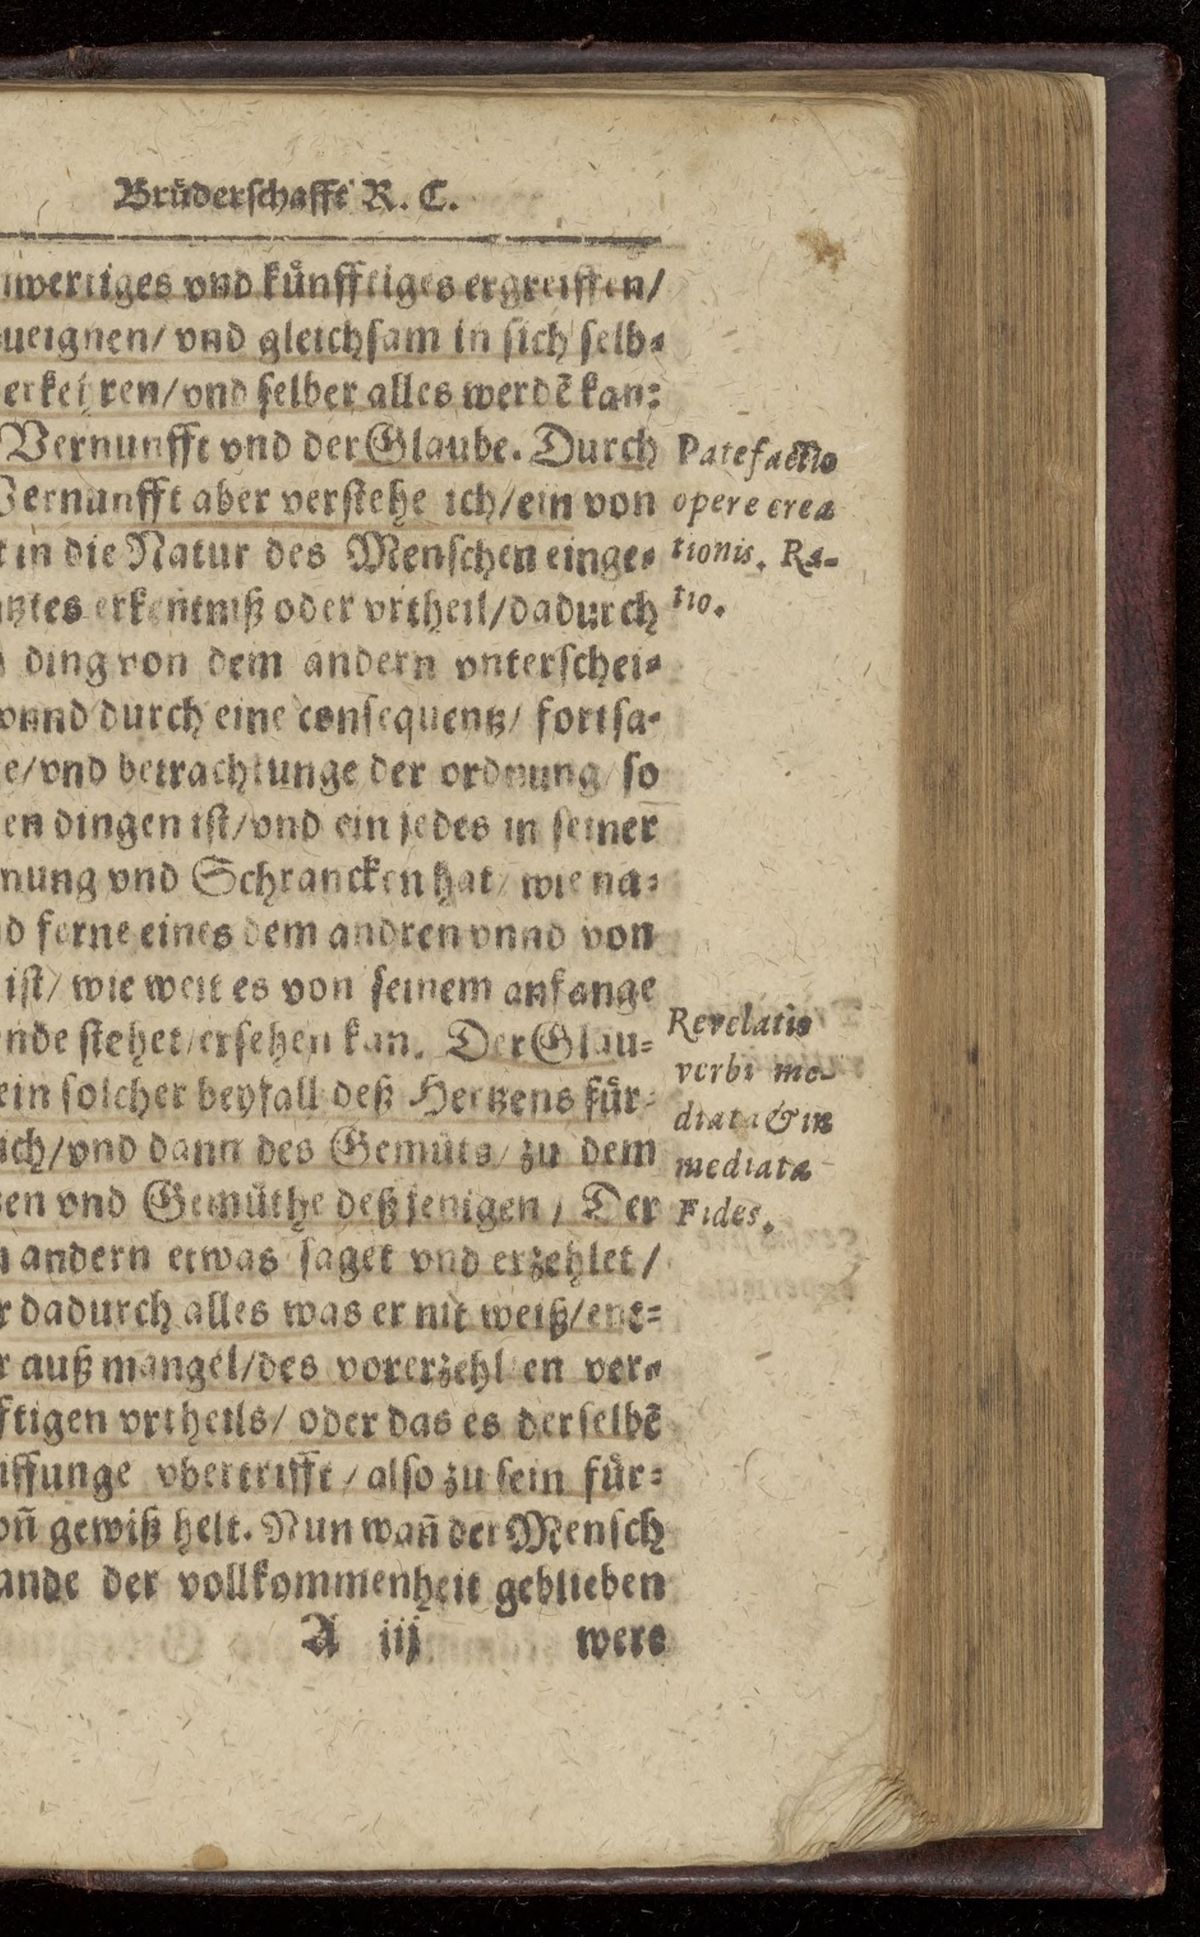 Brůderſchafft R. C.
wertiges vnd kůnfftiges ergreiffen/
ueignen/ vnd gleichſam in ſich ſelb-
erkehren/vnd ſelber alles werdē kan:
Vernunfft vnd der Glaube. Durch
Vernunfft aber verſtehe ich/ein von
in die Natur des Menſchen einge-
tztes erkentniß oder vrtheil/dadurch
ding von dem andern vnterſchei-
vnnd durch eine conſequentz/ fortſa-
e/vnd betrachtunge der ordnung/ſo
en dingen iſt/vnd ein jedes in ſeiner
nung vnd Schrancken hat/ wie na-
d ferne eines dem andren vnnd von
iſt/ wie weit es von ſeinem anfange
nde ſtehet/erſehen kan. Der Glau-
ein ſolcher beyfall deß Hertzens fůr-
ich/vnd dann des Gemůts/ zu dem
en vnd Gemůthe deßjenigen / Der
andern etwas ſaget vnd erzehlet/
r dadurch alles was er nit weiß/ent-
r auß mangel/des vorerzehlten ver-
ftigen vrtheils/ oder das es derſelbē
iffunge vbertrifft / alſo zu ſein fůr-
on̄ gewiß helt. Nun wan̄ der Menſch
ande der vollkommenheit geblieben
A iij
were
Patefactio
opere crea
tionis. Ra-
tio.
Revelatio
verbi me-
diata & in
mediata
Fides.